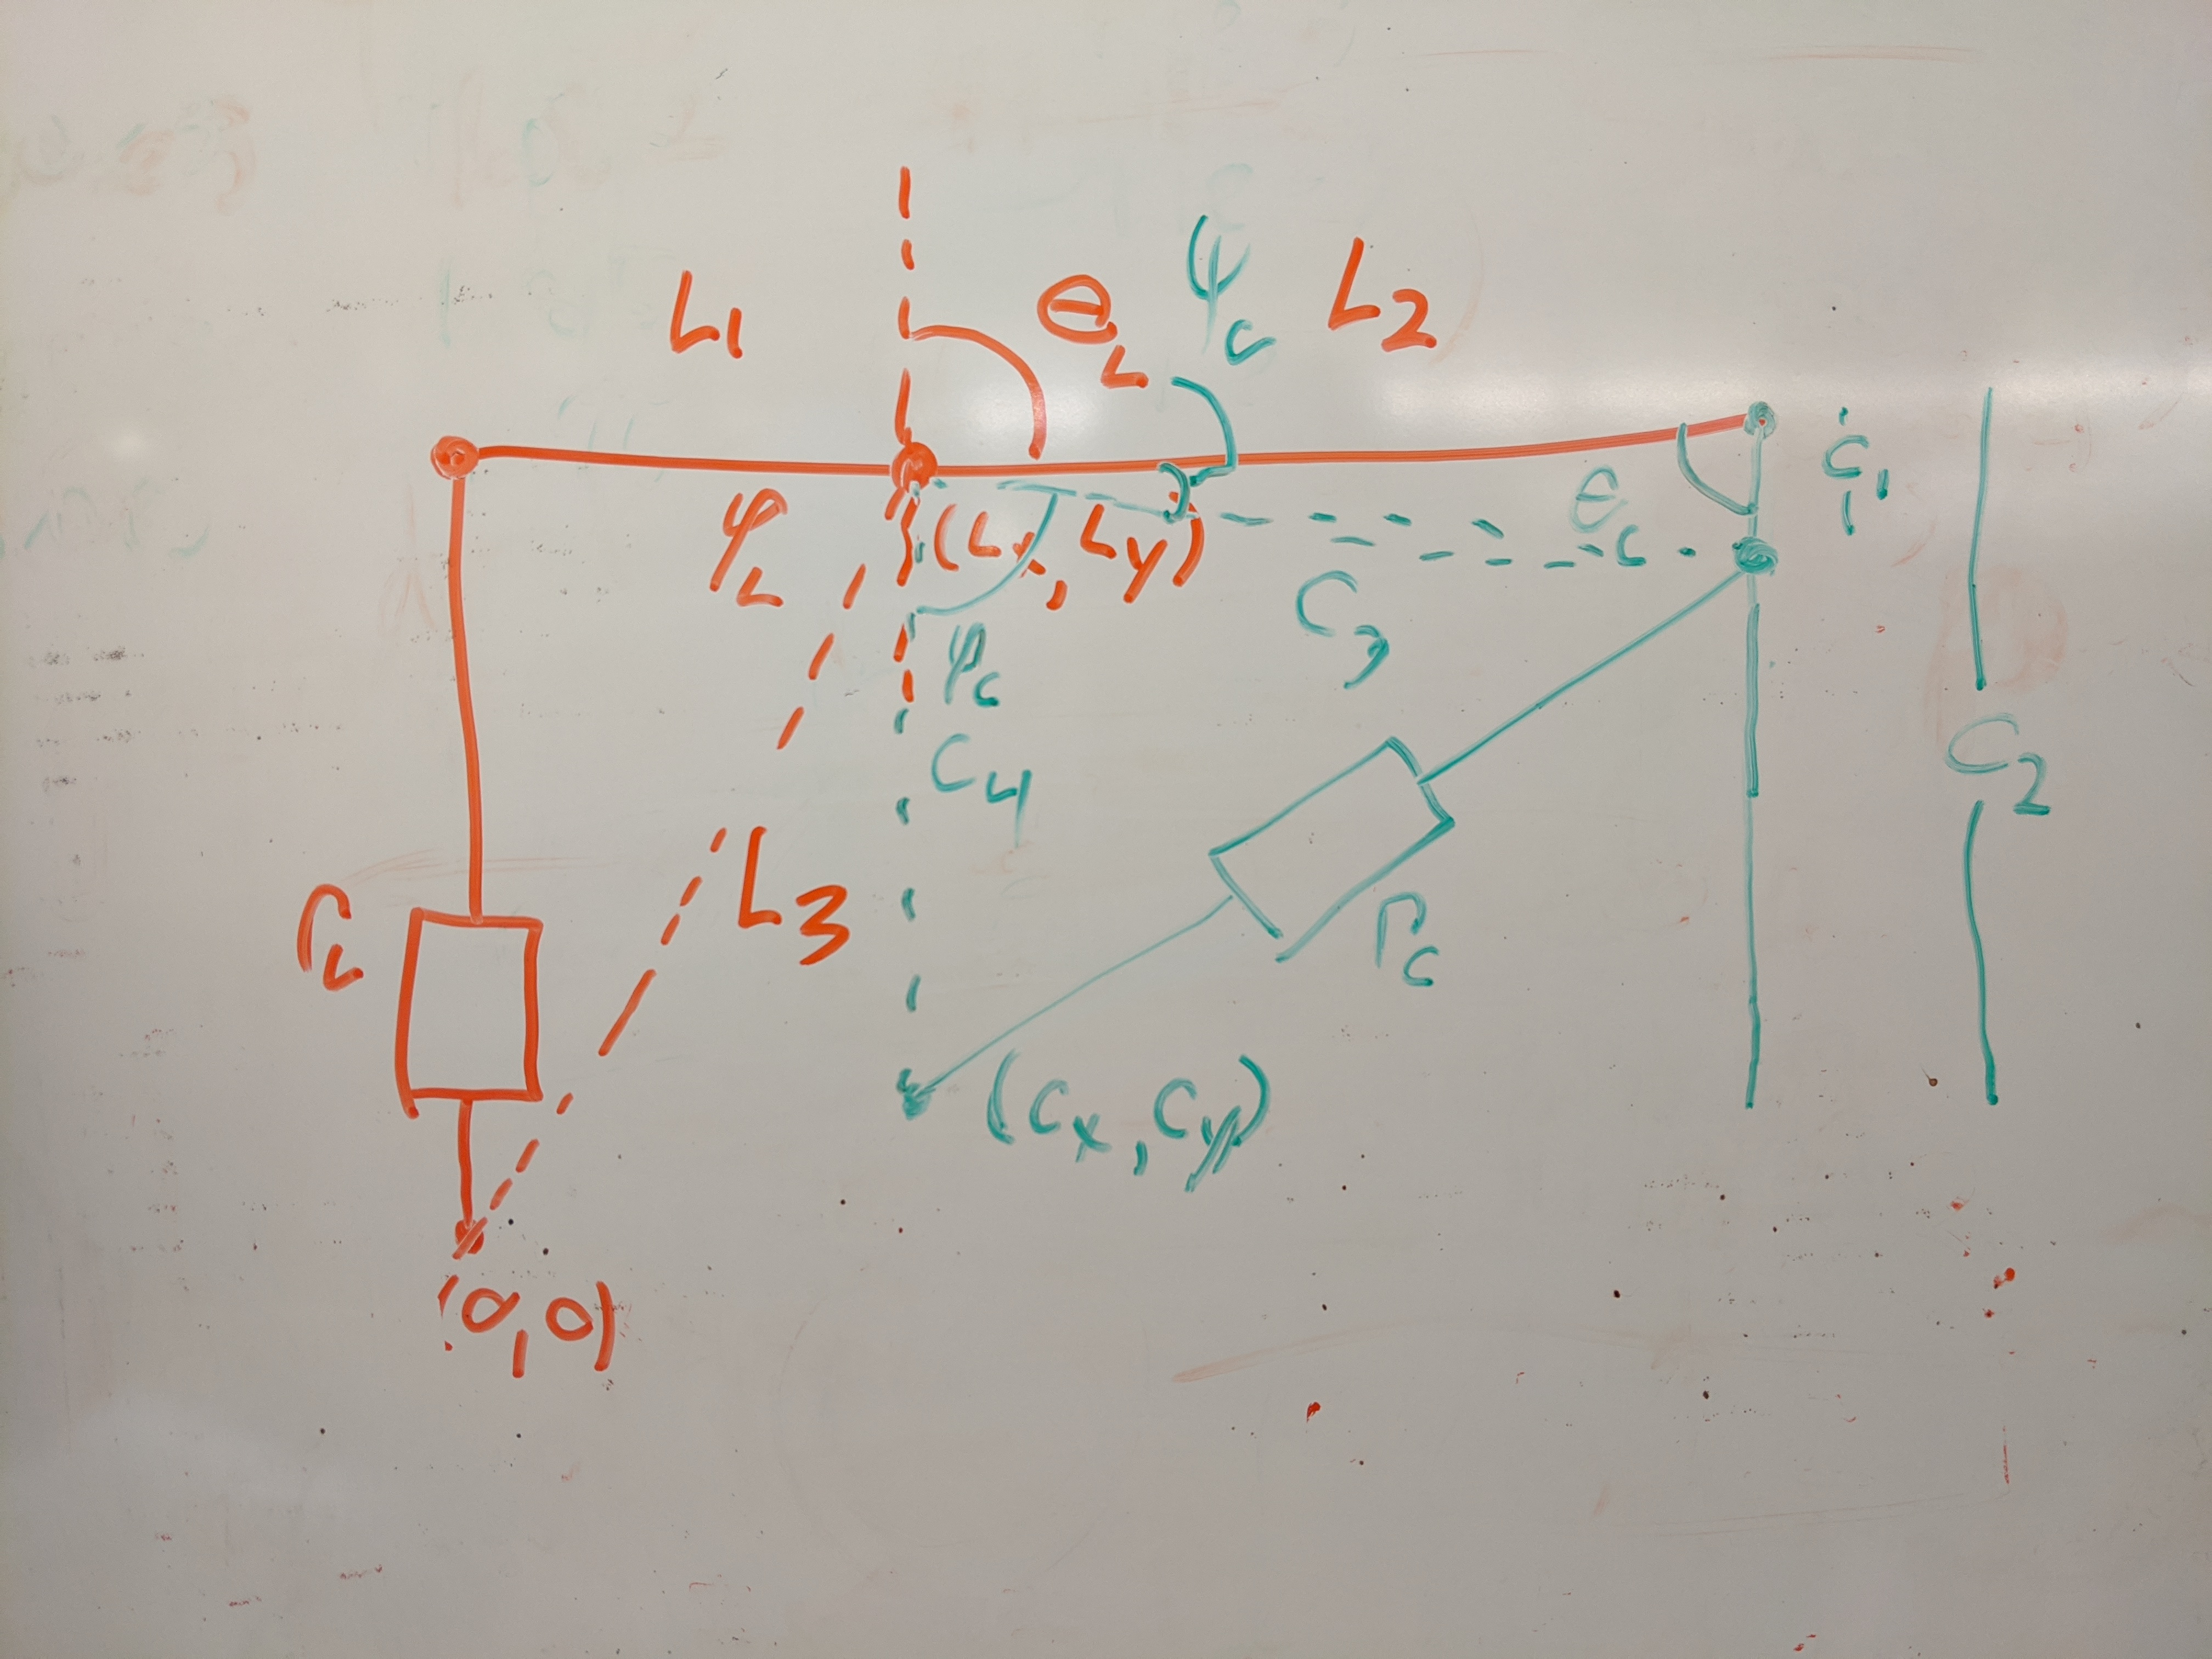 L₁
θ_L
ψ_c
L₂
φ_L
(Lx, Ly)
θ_c
C₁
C₃
φ_c
C₄
C₂
L₃
r_L
r_c
(Cx, Cy)
(0,0)